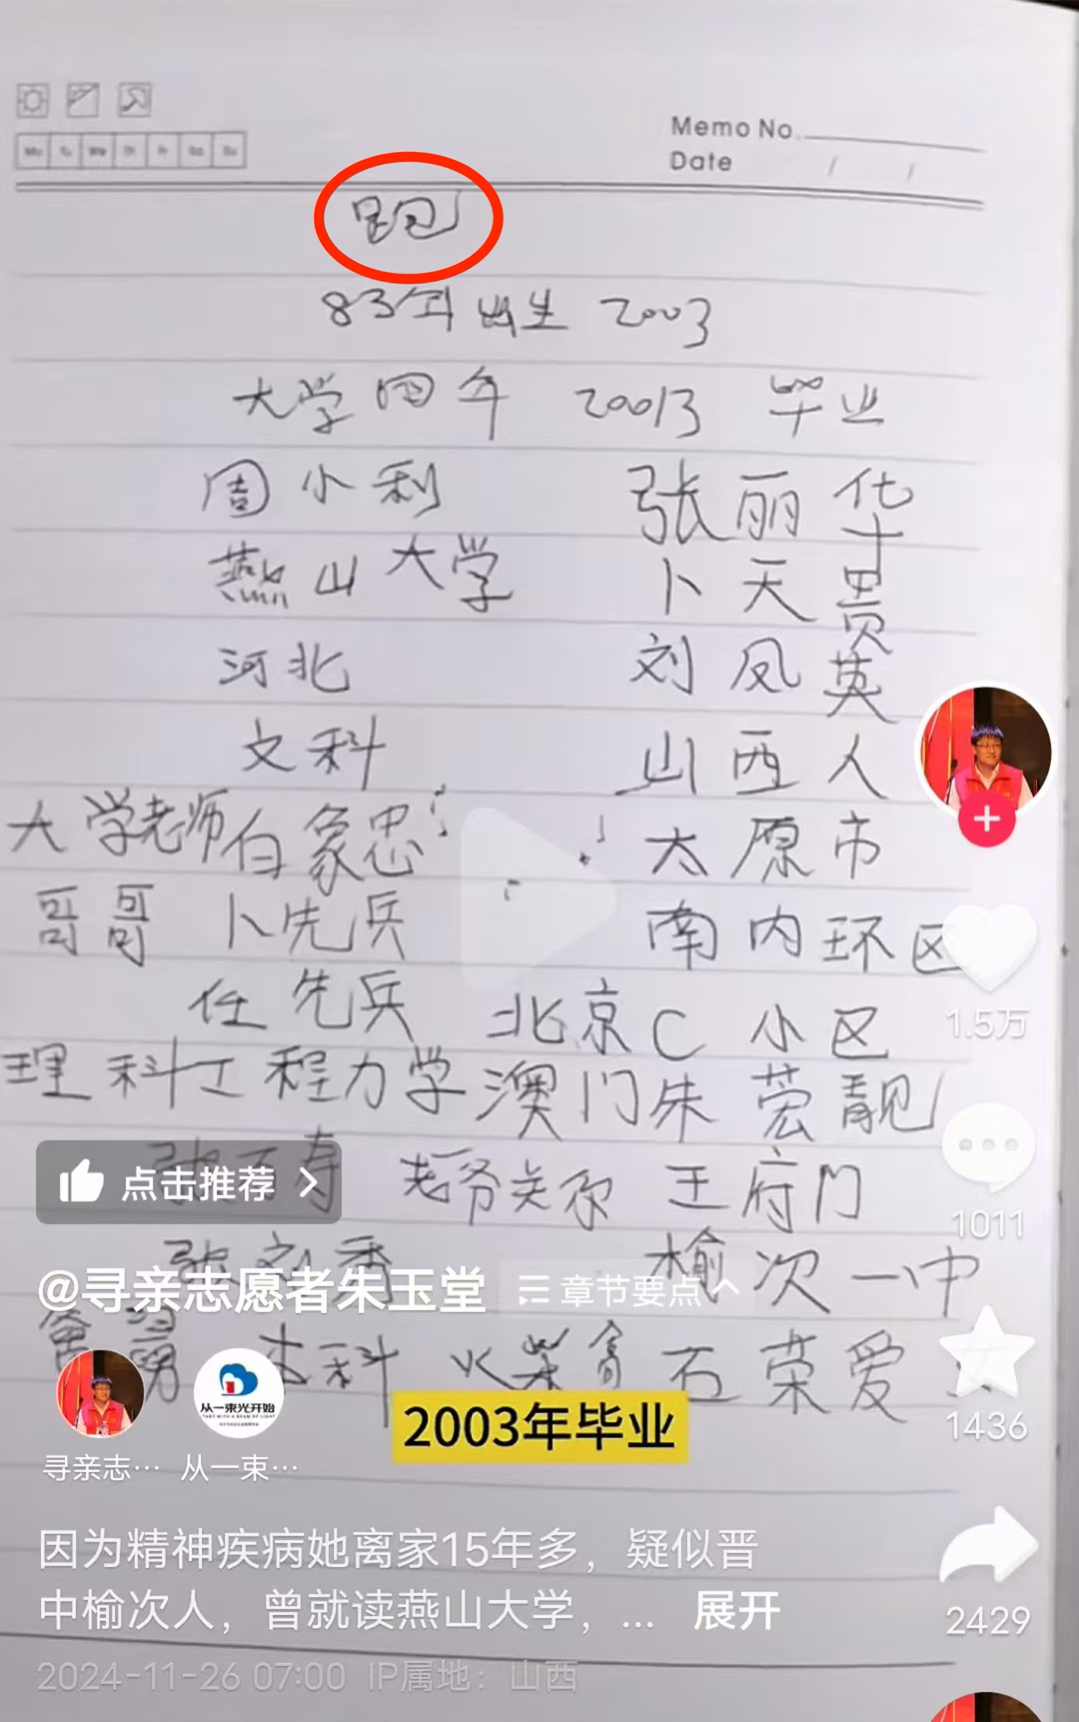 Memo No.
Date / /
Mo Tu We Th Fr Sa Su
83年出生 2003
大学四年 20013 毕业
周小利 张丽华
燕山大学 卜天贵
河北 刘凤英
文科 山西人
大学老师白象忠 太原市
哥哥 卜先兵 南内环区
任先兵 北京C小区
1.5万
理科工程力学 澳门朱蓉靓
点击推荐
老爷关你 王府门
1011
榆次一中
@寻亲志愿者朱玉堂
章节要点
本科 火柴 石荣爱
从一束光开始
START WITH A BEAM OF LIGHT
2003年毕业
1436
寻亲志… 从一束…
因为精神疾病她离家15年多，疑似晋
中榆次人，曾就读燕山大学，... 展开
2429
2024-11-26 07:00 IP属地：山西